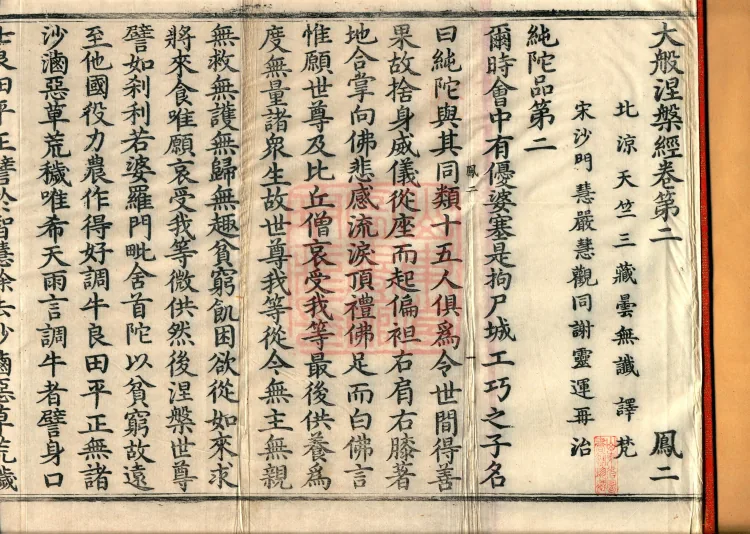 大般涅槃經卷第二 鳳二
北涼天竺三藏曇無讖譯梵
宋沙門慧嚴慧觀同謝靈運再治
純陀品第二
爾時會中有優婆塞是拘尸城工巧之子名
曰純陀與其同類十五人俱爲令世間得善
果故捨身威儀從座而起偏袒右肩右膝著
地合掌向佛悲感流淚頂禮佛足而白佛言
惟願世尊及比丘僧哀受我等最後供養爲
度無量諸衆生故世尊我等從今無主無親
無救無護無歸無趣貧窮飢困欲從如來求
將來食唯願哀受我等微供然後涅槃世尊
譬如刹利若婆羅門毗舍首陀以貧窮故遠
至他國役力農作得好調牛良田平正無諸
沙滷惡草荒穢唯希天雨言調牛者譬身口
七良田平正譬於智慧除去沙滷惡草荒穢
鳳二